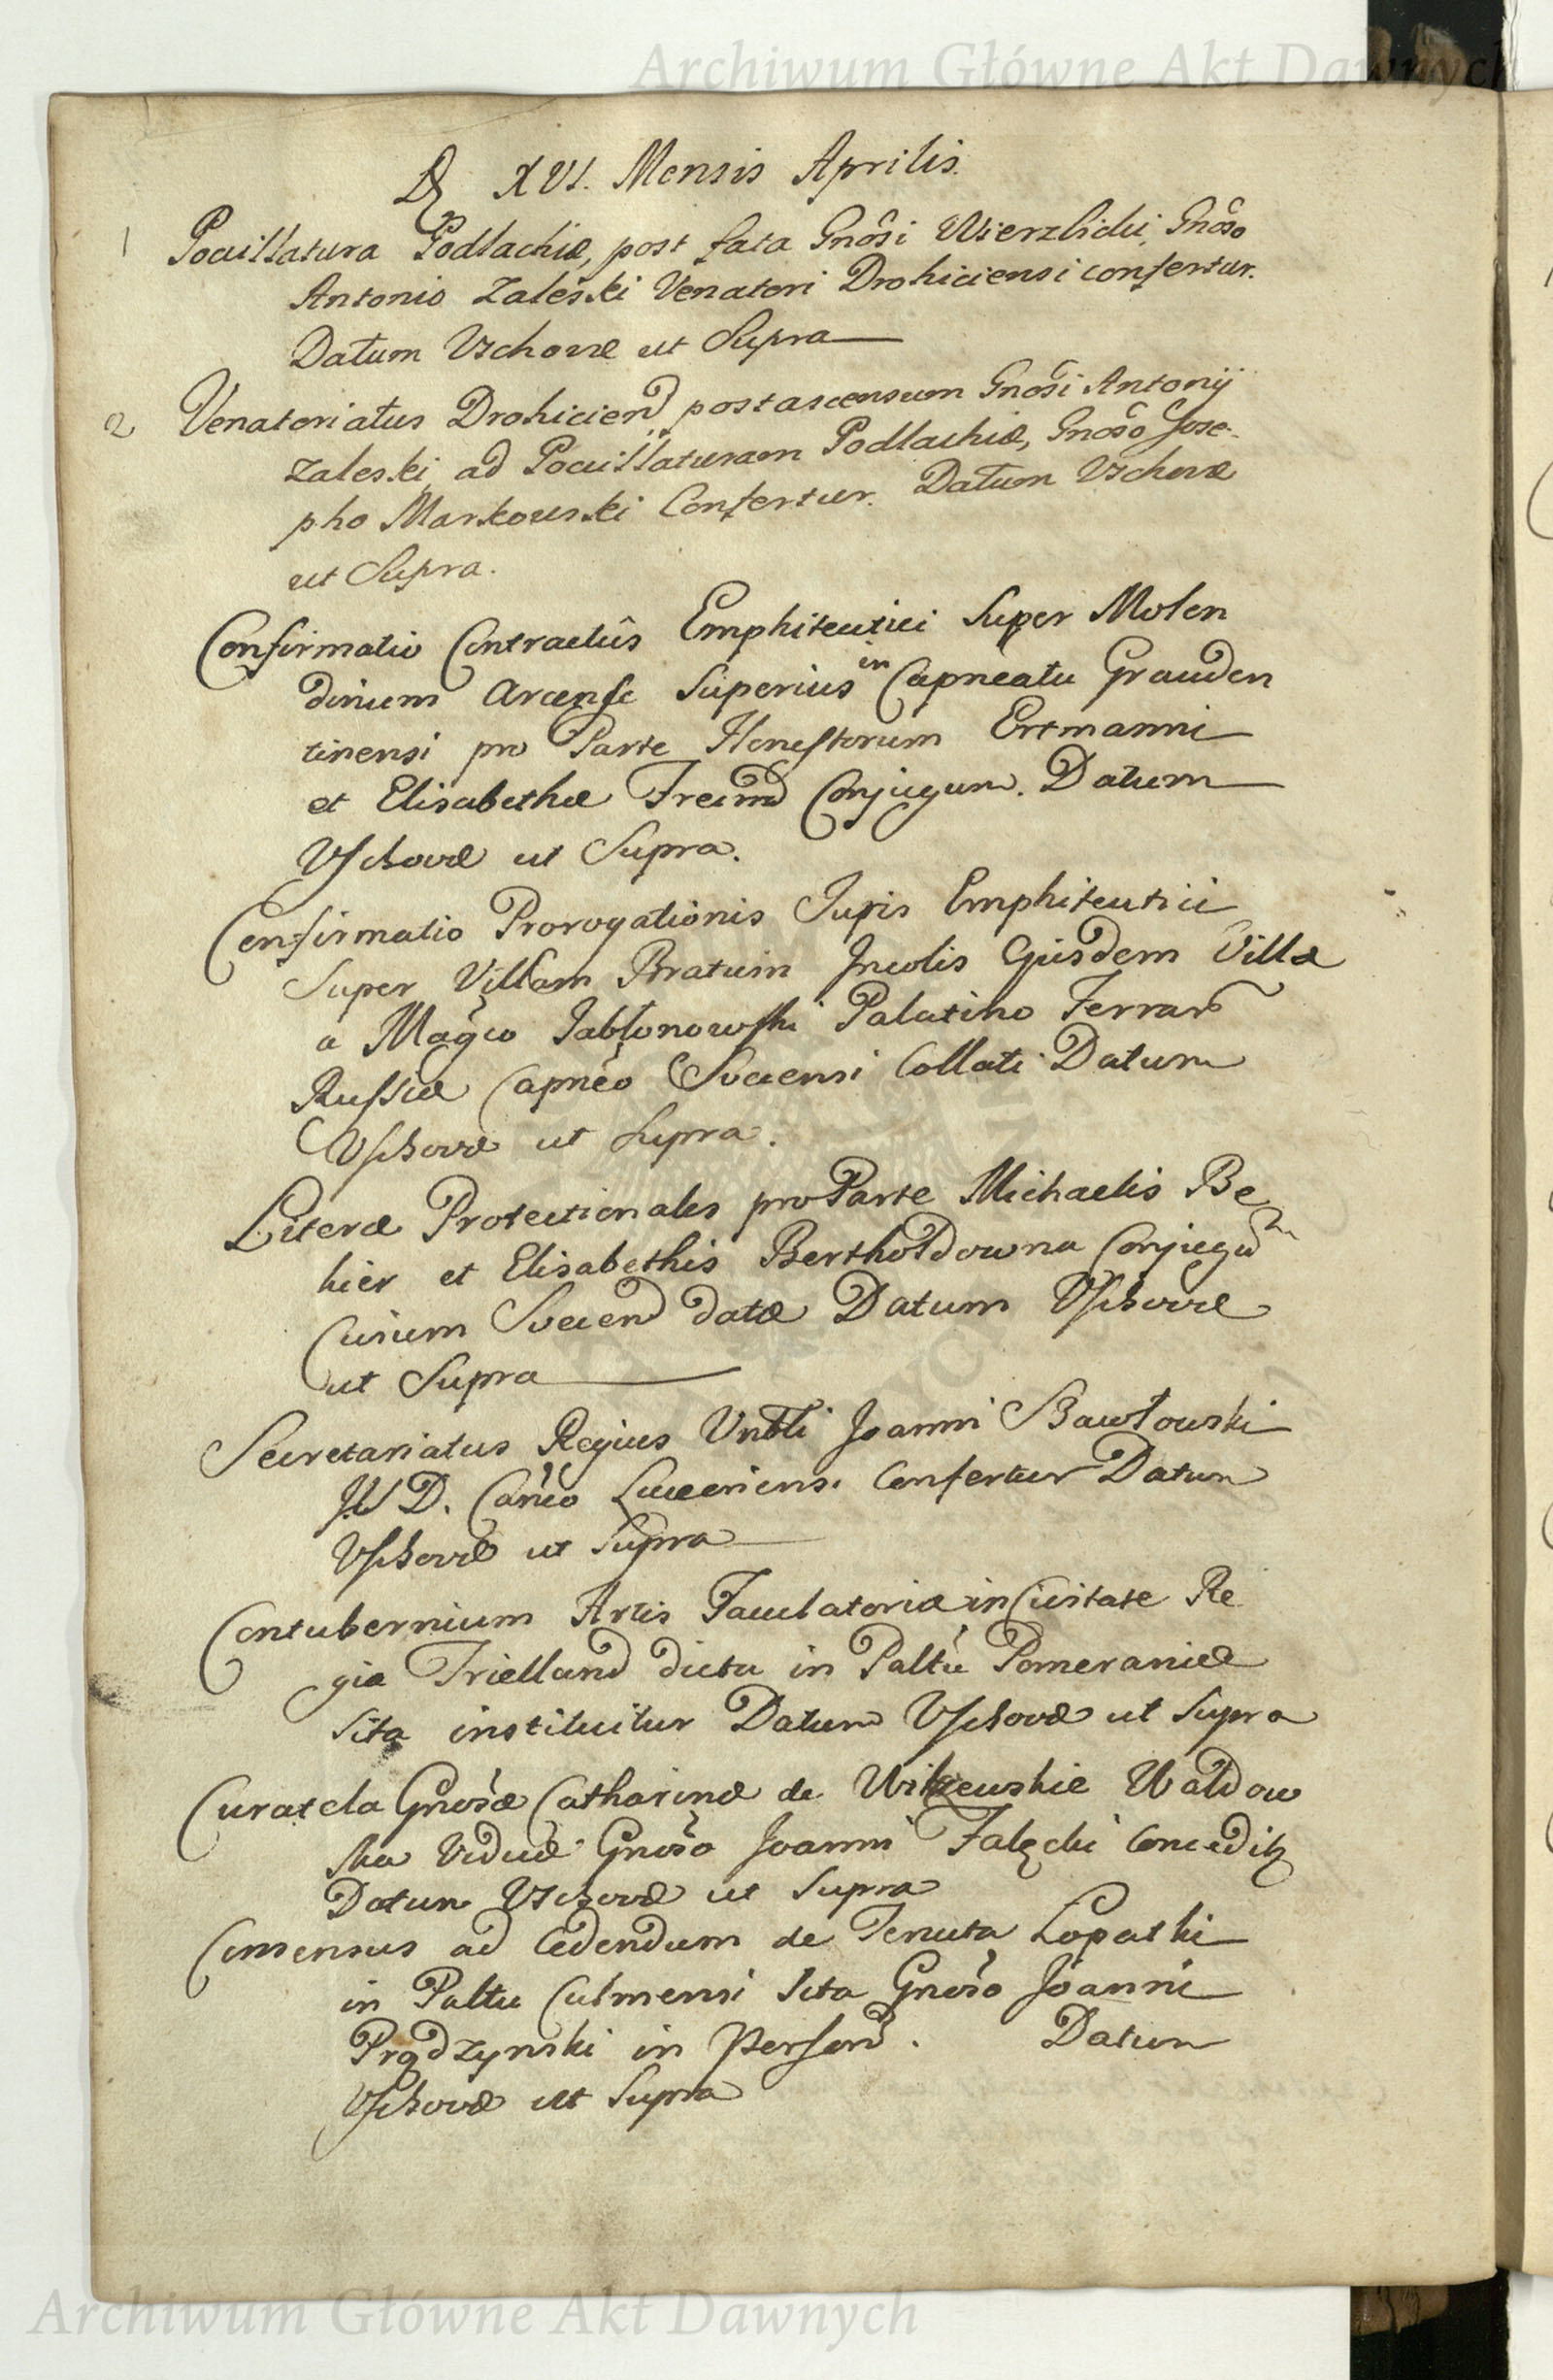 Archiwum Główne Akt Dawnych
D XVI. Mensis Aprilis.
1 Pocillatura Podlachiæ, post fata Gnosi Wierzbicki, Gnoso
Antonio Zaleski Venatori Drohiciensi confertur.
Datum Vschovæ ut Supra
2 Venatoriatus Drohicien, post ascensum Gnosi Antonij
Zaleski, ad Pocillaturam Podlachiæ, Gnoso Jose-
pho Markowski Confertur. Datum Vschovæ
ut Supra.
Confirmatio Contractûs Emphiteutici Super Molen
dinum Arcense Superius in Capneatu Grauden
tinensi pro Parte Honestorum Ertmanni
et Elisabethæ Freund Conjugum. Datum
Vschovæ ut Supra.
Confirmatio Prorogationis Juris Emphiteutici
Super Villam Bratuin Incolis Ejusdem Villæ
a Magco Jabłonowski Palatino Terrar
Russiæ Capneo Svecensi Collati Datum
Vschovæ ut Supra.
Literæ Protectionales pro Parte Michaelis Be
kier et Elisabethis Bertholdowna Conjugū
Civium Svecen datæ Datum Vschovæ
ut Supra
Secretariatus Regius Vnbli Joanni Bawłowski
JVD. Canco Luceoriensi Confertur Datum
Vschovæ ut Supra
Contubernium Artis Jaculatoriæ in Civitate Re
gia Frielland dicta in Paltu Pomeraniæ
Sita instituitur Datum Vschovæ ut Supra
Curatela Gnosæ Catharinæ de Wilzewskie Wałdow
ska Viduæ Gnoso Joanni Falęcki Conceditr
Datum Vschovæ ut Supra
Consensus ad Cedendum de Tenuta Łopatki
in Paltu Culmensi Sita Gnoso Joanni
Prądzynski in Person. Datum
Vschovæ ut Supra
Archiwum Główne Akt Dawnych